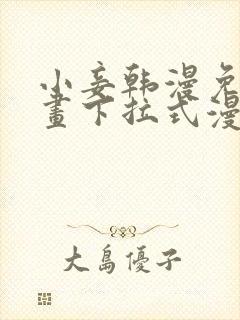 小妾韩漫免
畫下拉式漫
大島優子